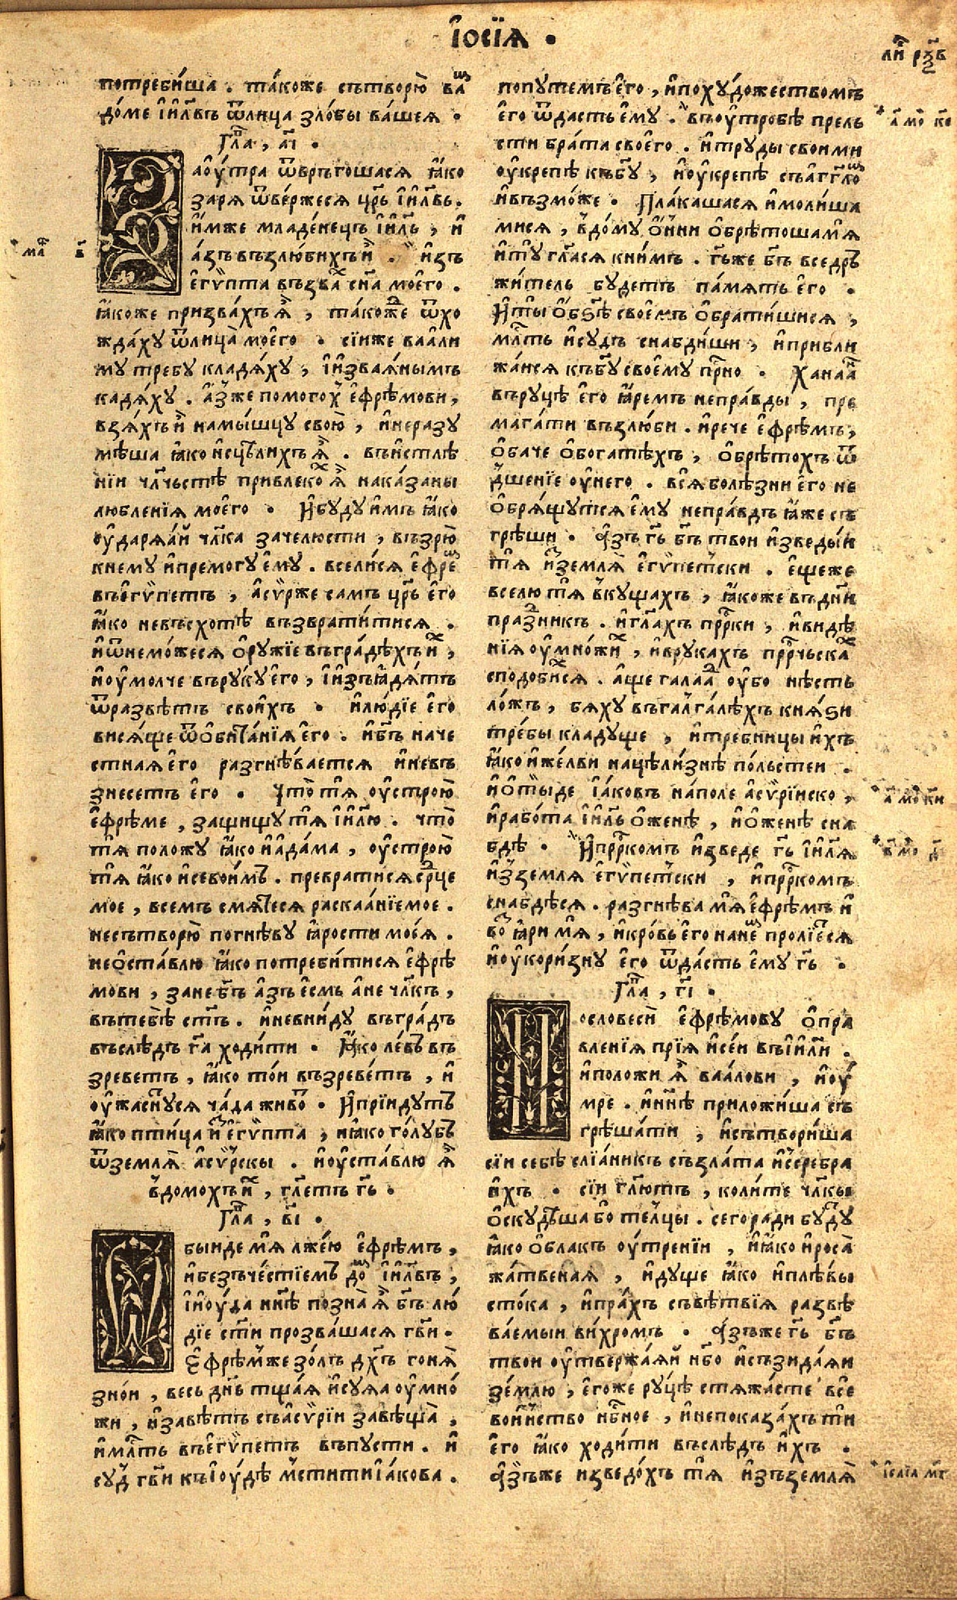 І҆ѻсїѧ .
потреби́ша . та́коже сътворю̀ ва́ш
до́ме і҆и҃лвъ ѿлица зло́бы ва́шеѧ .
Гл҃а , а҃і .
Заоу́тра ѿврьго́шасѧ ꙗ҆́ко
заря ѿве́ржесѧ цр҃ь і҆и҃лвь.
и҆́мже младе́нецъ і҆и҃ль , и҆
а҆́зъ възлюби́хъ и҆̀ . и҆зъ
е҆гѵ́пта възва́х сн҃а моего̀ .
ꙗ҆́коже призва́хъ ѧ҆̀ , та́коже ѿхо
жда́ху ѿлица̀ моего̀ . сїи́же ваали
му требу клада́ху , і҆и҆зва́ѧнымъ
када́ху . а҆́зже помого́х е҆фре́мови ,
взѧ́хъ и҆̀ на мы́шцу свою̀ , и҆неразу
мѣ́ша ꙗ҆́ко и҆сцѣли́хъ ѧ҆̀ . въи҆стлѣ
нїи чл҃чьстѣ привлеко́х ѧ҆̀ нака́заны
любле́нїѧ моего̀ . И҆бу́ду и҆́мъ ꙗ҆́ко
оу҆дарѧ́ѧй чл҃ка зачелюсти , възрю̀
книему̀ и҆премогу̀ е҆му̀ . вселисѧ е҆фре́м
въе҆гѵ́петъ , а҆сѵ́рже самъ цр҃ь е҆го̀
ꙗ҆́ко невъсхотѣ̀ възврати́тисѧ .
и҆ѿнеможесѧ ѻ҆ру́жїе въгра́дѣхъ и҆́х ,
и҆оу҆молче въру́ку е҆го̀ , і҆и҆зъꙗ҆дѧ́тъ
ѿразвѣ́тъ свои́хъ . и҆лю́дїе е҆го̀
висѧ́ще ѿѻ҆бита́нїѧ е҆го̀ . и҆бг҃ъ наче
стнаѧ е҆го̀ разгнѣ́ваетсѧ и҆невъ
знесе́тъ е҆го̀ . Что̀ тѧ̀ оу҆строю̀
е҆фре́ме , защищу́ тѧ і҆и҃лю . что̀
тѧ̀ положу̀ ꙗ҆́ко и҆а҆да́ма , оу҆строю̀
тѧ̀ ꙗ҆́ко и҆севои́мъ . преврати́сѧ ср҃це
моѐ , всемъ смѧте́сѧ раскаѧ́нїе моѐ .
несътворю̀ погнѣ́ву ꙗ҆́рости моеѧ̀ .
неѻ҆ста́влю ꙗ҆́ко потреби́тисѧ е҆фре́
мови , зане бг҃ъ а҆́зъ е҆́смь а҆не чл҃къ ,
въ тебѣ̀ ст҃ъ . и҆невни́ду въгра́дъ
въслѣ́дъ гд҃а ходи́ти . Ꙗ҆́ко ле́въ въ
зреве́тъ , ꙗ҆́ко то́и възреве́тъ , и҆
оу҆жаснꙋсѧ ча́да живо . И҆прїи́дутъ
ꙗ҆́ко пти́ца и҆з е҆гѵ́пта , и҆ꙗ҆́ко го́лубъ
ѿземлѧ̀ а҆сѵ́рскы . и҆оу҆ста́влю ѧ҆̀
вдомо́хъ и҆́х , гл҃етъ гд҃ь .
Гл҃а , в҃і .
Ѡ҆бы́де мѧ лже́ю е҆фре́мъ ,
и҆безче́стїемъ до́м і҆и҃лвъ ,
і҆и҆ю́да нн҃ѣ позна̀ ѧ҆̀ бг҃ъ лю́
дїе ст҃и прозва́шасѧ гв҃и .
Е҆фре́мже зо́лъ дх҃ъ гонѧ̀
зно́и , весь дн҃ь тща́ѧ и҆суѧ оу҆мно́
жи , и҆завѣ́тъ съа҆сѵ́рїи завѣща̀ ,
и҆мл҃ть въе҆гѵ́петъ въпусти . и҆
су́д гв҃и къ і҆ю́дѣ мсти́ти і҆а́кова .
попуте́мъ е҆го̀ , и҆похудо́жествомъ
е҆го̀ ѿда́сть е҆му̀ . въоу҆тро́бѣ прель
сти бра́та своего̀ . и҆труды̀ своими
оу҆крепѣ̀ къбг҃у , и҆оу҆крепѣ̀ съа́гг҃лом
и҆възмо́же . Пла́кашасѧ и҆моли́ша
мисѧ , вдому̀ ѻ҆́нни ѻ҆брѣто́ша мѧ̀
и҆ту̀ гл҃асѧ книмъ . гд҃ьже бг҃ъ вседръ
жи́тель бу́детъ па́мѧть е҆го̀ .
И҆ты̀ ѻ҆ бз҃ѣ свое́мъ ѻ҆брати́шисѧ ,
мл҃ть и҆су́дъ снабди́ши , и҆прибли
жа́исѧ къбг҃у своему̀ пр҃но . Ханаа́н
въру́цѣ е҆го̀ ꙗ҆ре́мъ непра́вды , пре
мага́ти възлюби . и҆рече е҆фре́мъ ,
ѻ҆ба́че ѻ҆богатѣ́хъ , ѻ҆брѣто́хъ ѿ
дшенїе оу҆него̀ . всѧ болѣзни е҆го̀ не
ѻ҆брѧ́щутсѧ е҆му̀ непра́вдъ ꙗ҆́же съ
грѣши . А҆́зъ гд҃ь бг҃ъ тво́и и҆зведы́и
тѧ̀ и҆з землѧ̀ е҆гѵ́петски . е҆щеже
вселю́ тѧ вку́щахъ , ꙗ҆́коже въдн҃и
пра́зникъ . и҆гл҃ахъ пр҃рки , и҆видѣ́
нїѧ оу҆мно́жи , и҆врука́хъ пр҃рчьска́х
сподо́бихсѧ . а҆ще галаа́д оу҆бо нѣсть
ло́жъ , бѧ́ху въгалга́лѣхъ кнѧ́ѕи
тре́бы кладу́ще , и҆тре́бницы и҆́хъ
ꙗ҆́ко и҆же́лви нацѣлизнѣ̀ по́льстеи .
и҆ѿты́де і҆а́ковъ на́поле а҆сѵ́рїиско ,
и҆рабо́та і҆и҃ль ѻ҆женѣ̀ , и҆ѻ҆женѣ̀ сна
бдѣ̀ . И҆пр҃ркомъ и҆зведе гд҃ь і҆и҃лѧ
и҆зземлѧ̀ е҆гѵ́петски , и҆пр҃ркомъ
снабдѣ́сѧ . разгнѣва мѧ̀ е҆фре́мъ и҆
во ꙗ҆ри мѧ̀ , и҆кро́вь е҆го̀ нане́м пролїе́сѧ
и҆оу҆кори́зну е҆го̀ ѿда́сть е҆му̀ гд҃ь .
Гл҃а , г҃і .
Пословеси̑ е҆фре́мову ѻ҆пра
вле́нїѧ прїѧ̀ и҆се́и въі҆и҃ли .
и҆положи ѧ҆̀ ваа́лови , и҆оу҆́
мре . и҆нн҃ѣ приложи́ша съ
грѣша́ти , и҆сътвори́ша
сїи себѣ̀ слїа́никъ съзла́та и҆сребра
и҆́хъ . сїи гл҃ютъ , коли́те чл҃кы
ѻ҆скудѣ́ша бо телцы̀ . сегора́ди бу́ду
ꙗ҆́ко ѻ҆́блакъ оу҆́тренїи , и҆ꙗ҆́ко и҆роса̀
жа́твенаѧ , и҆ду́ще ꙗ҆́ко и҆пле́вы
стока , и҆пра́хъ съвѣ́твїѧ развѣ
ва́емыи ви́хромъ . А҆́зъже гд҃ь бг҃ъ
тво́и оу҆твержа́ѧй нб҃о и҆съзида́ѧи
зе́млю , е҆гоже ру́цѣ стѧжа́сте все
во́и҆нство нб҃ное , и҆непоказа́хъ ти
е҆го̀ ꙗ҆́ко ходи́ти въслѣ́дъ и҆́хъ .
А҆́зъже и҆зведо́хъ тѧ̀ и҆зъземлѧ̀